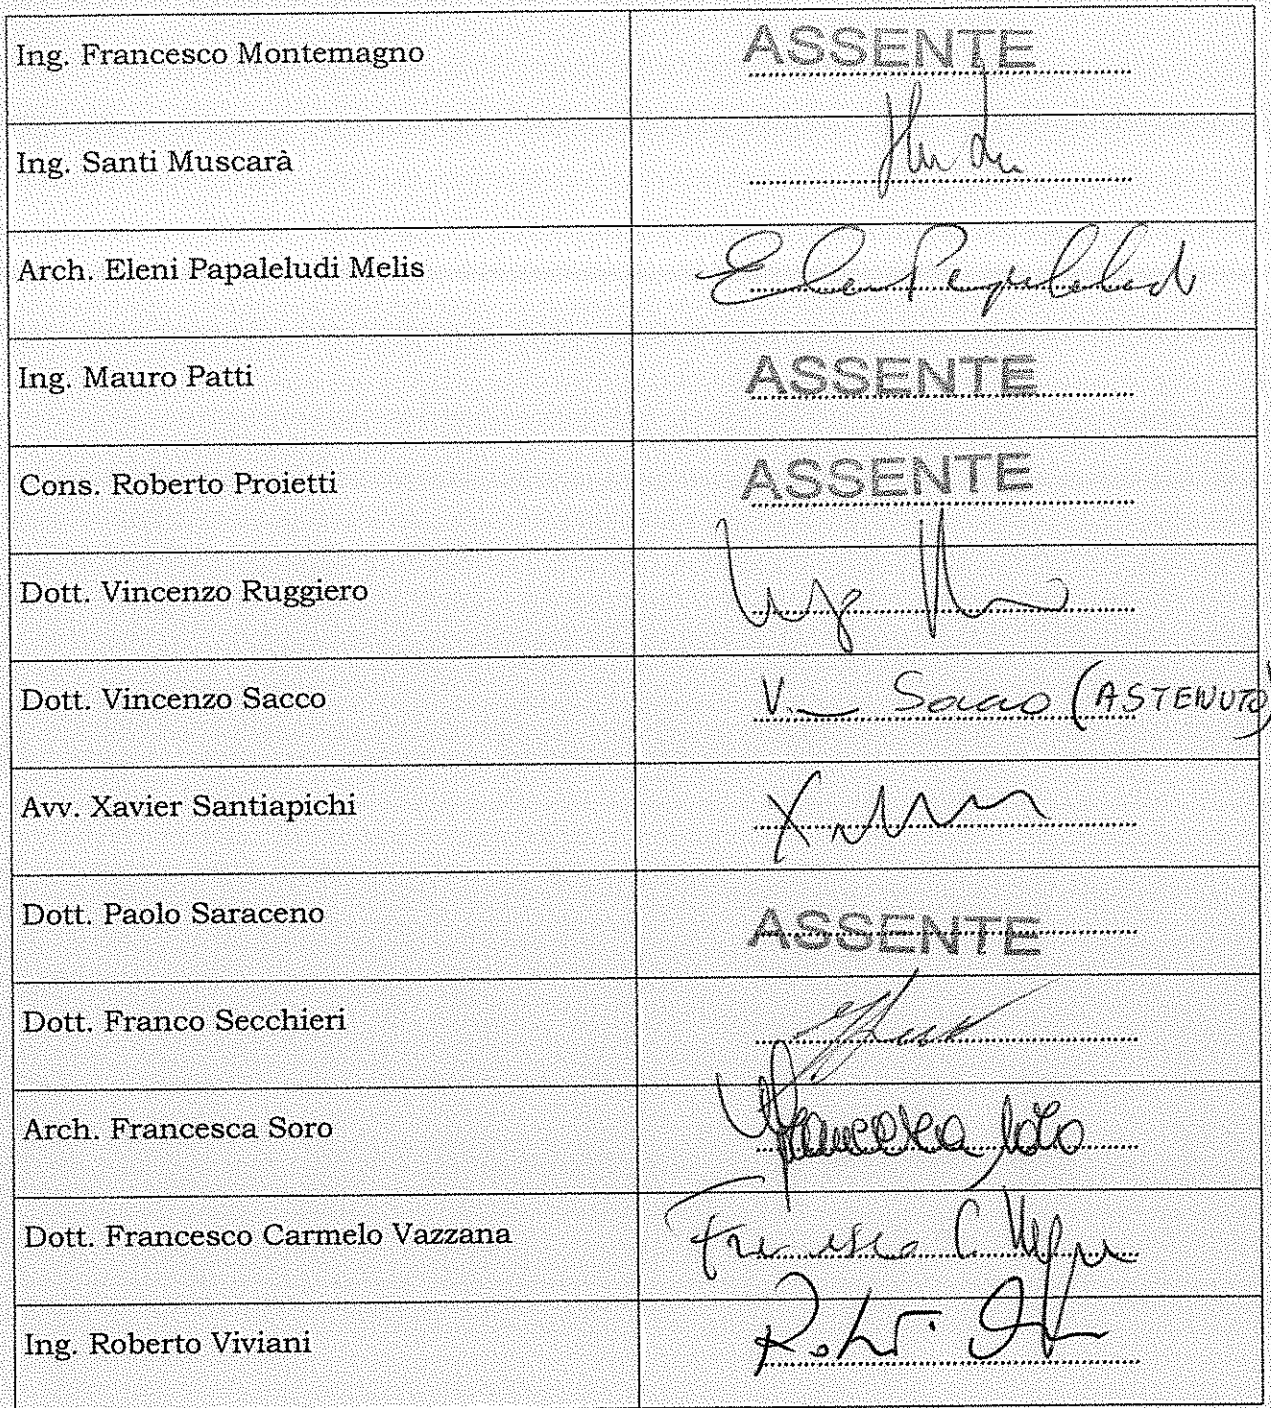 Ing. Francesco Montemagno ASSENTE
Ing. Santi Muscarà
Arch. Eleni Papaleludi Melis Eleni Papaleludi
Ing. Mauro Patti ASSENTE
Cons. Roberto Proietti ASSENTE
Dott. Vincenzo Ruggiero
Dott. Vincenzo Sacco V. Sacco (ASTENUTO)
Avv. Xavier Santiapichi
Dott. Paolo Saraceno ASSENTE
Dott. Franco Secchieri
Arch. Francesca Soro Francesca Soro
Dott. Francesco Carmelo Vazzana Francesco C.
Ing. Roberto Viviani